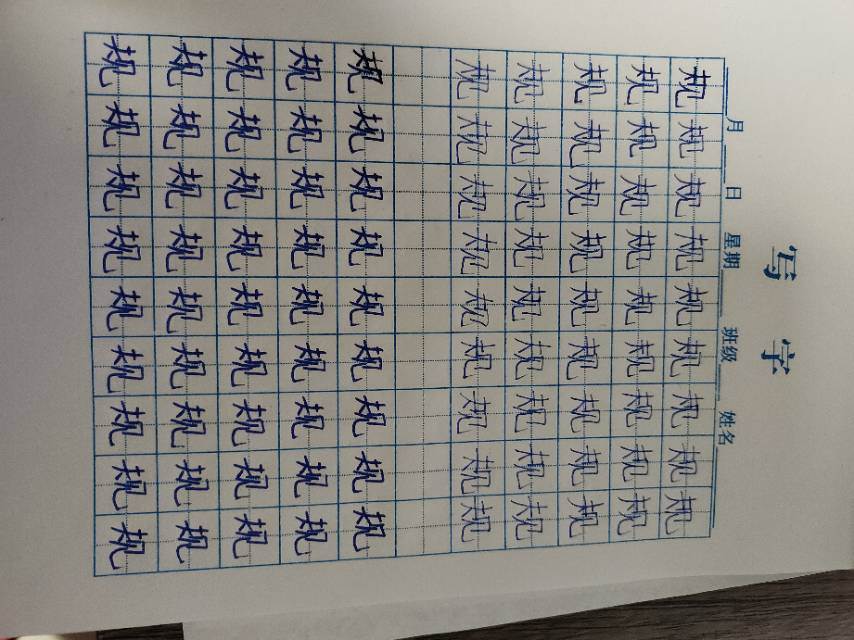 写 字
月 日 星期 班级 姓名
规规规规规规规规规
规规规规规规规规规
规规规规规规规规规
规规规规规规规规规
规规规规规规规规规
规规规规规规规规规
规规规规规规规规规
规规规规规规规规规
规规规规规规规规规
规规规规规规规规规